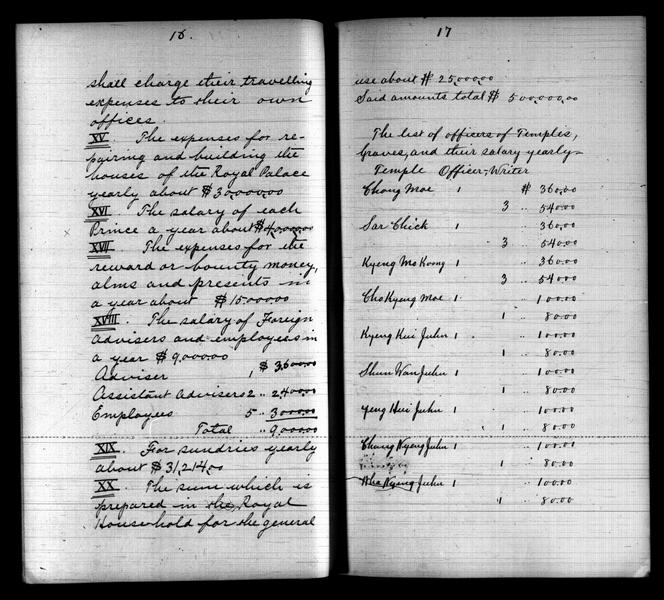 16.
shall charge their travelling
expenses to their own
offices.
XV. The expenses for re-
pairing and building the
houses of the Royal Palace
yearly about $30,000.00
XVI The salary of each
Prince a year about $4,000.00
XVII The expenses for the
reward or bounty money,
alms and presents in
a year about $15,000.00
XVIII. The salary of Foreign
advisers and employees in
a year $9,000.00
Adviser 1 $3,600.00
Assistant Advisers 2 " 2,400.00
Employees 5 " 3,000.00
Total " 9,000.00
XIX. For sundries yearly
about $31,214.00
XX. The sum which is
prepared in the Royal
Household for the general
17
use about $25,000.00
Said amounts total $500,000.00
The list of officers of Temples,
Graves, and their salary yearly—
Temple Officer, Writer
Chong Moe 1 $360.00
3 " 540.00
Sar Chick 1 " 360.00
3 " 540.00
Kyeng Mo Koong 1 " 360.00
3 " 540.00
Cho Kyeng Moe 1 " 100.00
1 " 80.00
Kyeng Kui Juhn 1 " 100.00
1 " 80.00
Shun Wan Juhn 1 " 100.00
1 " 80.00
Yeng Hui Juhn 1 " 100.00
1 " 80.00
Chang Nyeng Juhn 1 " 100.00
1 " 80.00
Wha Nyeng Juhn 1 " 100.00
1 " 80.00